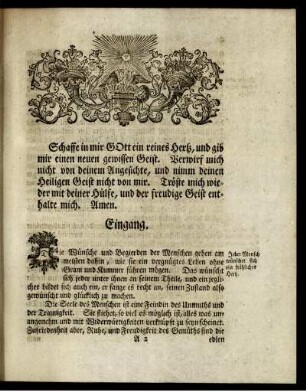 Schaffe in mir GOtt ein reines Hertz, und gib
mir einen neuen gewissen Geist. Verwirf mich
nicht von deinem Angesichte, und nimm deinen
Heiligen Geist nicht von mir. Tröste mich wie-
der mit deiner Hülfe, und der freudige Geist ent-
halte mich. Amen.
Eingang.
Die Wünsche und Begierden der Menschen gehen am
meisten dahin, wie sie ein vergnügtes Leben ohne
Gram und Kummer führen mögen. Das wünscht
sich jeder unter ihnen an seinem Theile, und ein jeg-
liches bildet sich auch ein, er fange es recht an, seinen Zustand also
gewünscht und glücklich zu machen.
Die Seele des Menschen ist eine Feindin des Unmuths und
der Traurigkeit. Sie fliehet, so viel es möglich ist, alles was un-
angenehm und mit Widerwärtigkeiten verknüpft zu seyn scheinet.
Zufriedenheit aber, Ruhe, und Freudigkeit des Gemüths sind die
A 2
edlen
Jeder Mensch
wünschet sich
ein fröhliches
Hertz.